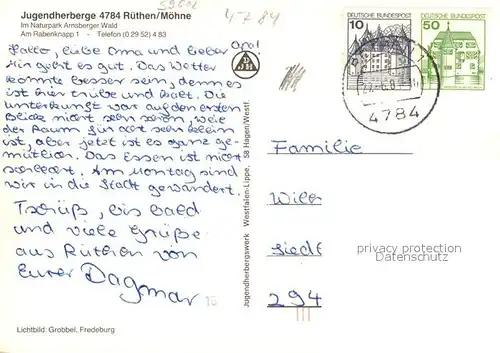 Jugendherberge 4784 Rüthen/Möhne
Im Naturpark Arnsberger Wald
Am Rabenknapp 1 - Telefon (0 29 52) 4 83
4-7 84
Hallo, liebe Oma und lieber
Opa!
Mir geht es gut. Das Wetter
könnte besser sein, denn es
ist hier trübe und kalt. Die
Unterkunft war auf den ersten
Blick nicht sehr schön, weil
der Raum für acht sehr klein
ist, aber jetzt ist es ganz ge-
mütlich. Das Essen ist nicht
schlecht. Am Montag sind
wir in die Stadt gewandert.
Tschüß, bis bald
und viele Grüße
aus Rüthen von
Eurer Dagmar
Lichtbild: Grobbel, Fredeburg
Jugendherbergswerk Westfalen-Lippe, 58 Hagen/Westf.
10 DEUTSCHE BUNDESPOST
50 DEUTSCHE BUNDESPOST
4784
Familie
Wilb
Siedl
294
privacy protection
Datenschutz